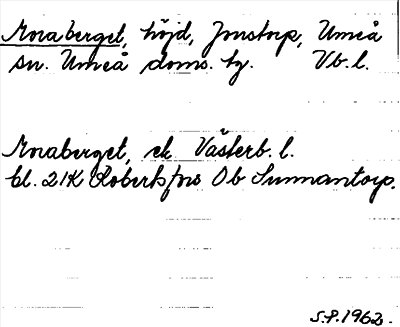 Moraberget, höjd, Jonstorp, Umeå
sn. Umeå doms. hg. Vb. l.
Moraberget, ek Västerb. l.
bl. 21K Robertsfors Ob Sunnantorp.
S.P. 1962.